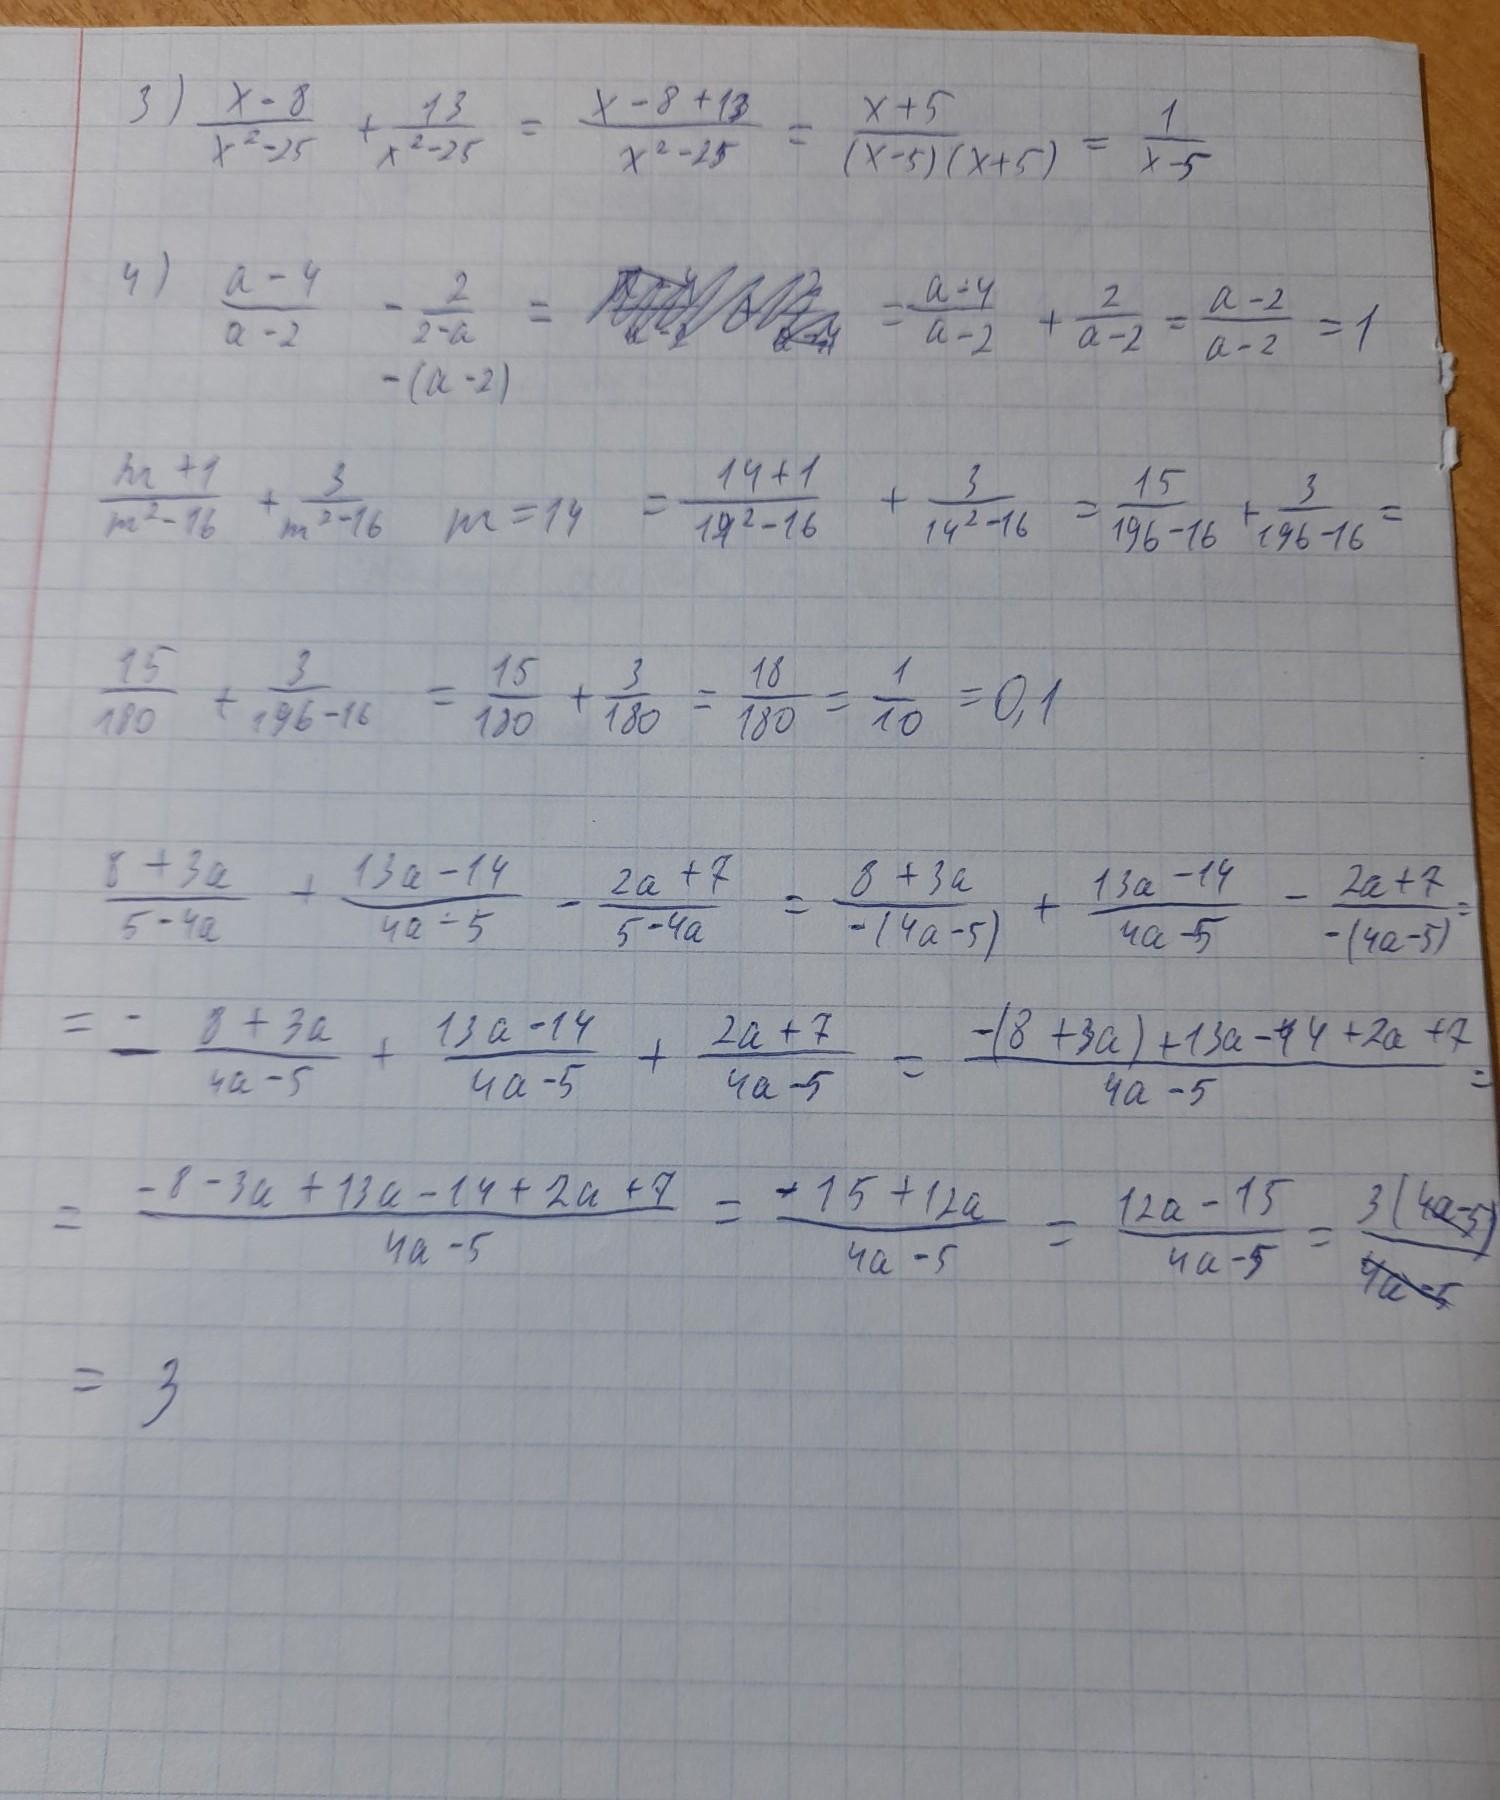 3) (x-8)/(x²-25) + 13/(x²-25) = (x-8+13)/(x²-25) = (x+5)/((x-5)(x+5)) = 1/(x-5)
4) (a-4)/(a-2) - 2/(2-a) = = (a-4)/(a-2) + 2/(a-2) = (a-2)/(a-2) = 1
-(a-2)
(m+1)/(m²-16) + 3/(m²-16) m=14 = (14+1)/(14²-16) + 3/(14²-16) = 15/(196-16) + 3/(196-16) =
15/180 + 3/(196-16) = 15/180 + 3/180 = 18/180 = 1/10 = 0,1
(8+3a)/(5-4a) + (13a-14)/(4a-5) - (2a+7)/(5-4a) = (8+3a)/(-(4a-5)) + (13a-14)/(4a-5) - (2a+7)/(-(4a-5)) =
= - (8+3a)/(4a-5) + (13a-14)/(4a-5) + (2a+7)/(4a-5) = (-(8+3a)+13a-14+2a+7)/(4a-5) =
= (-8-3a+13a-14+2a+7)/(4a-5) = (-15+12a)/(4a-5) = (12a-15)/(4a-5) = 3(4a-5)/(4a-5)
= 3